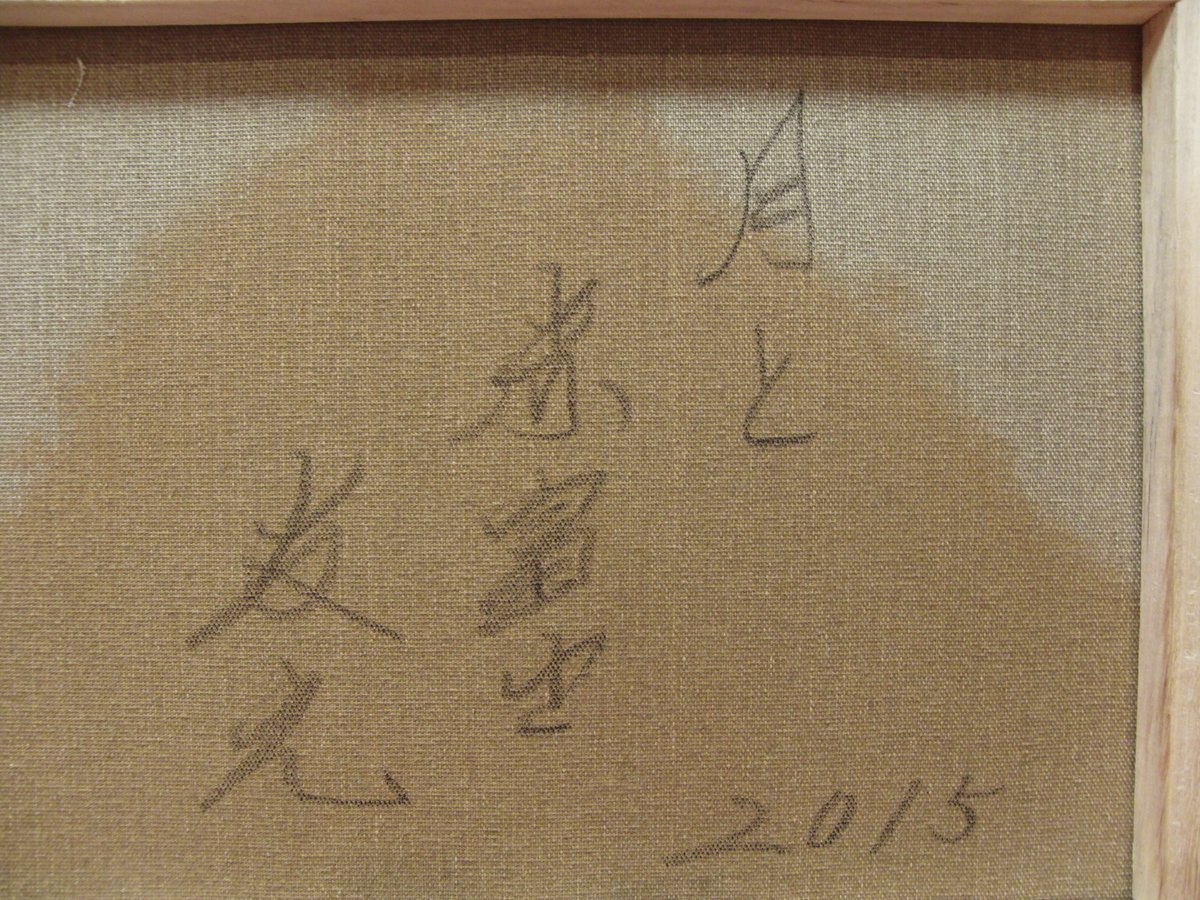 月と
赤富士
2015